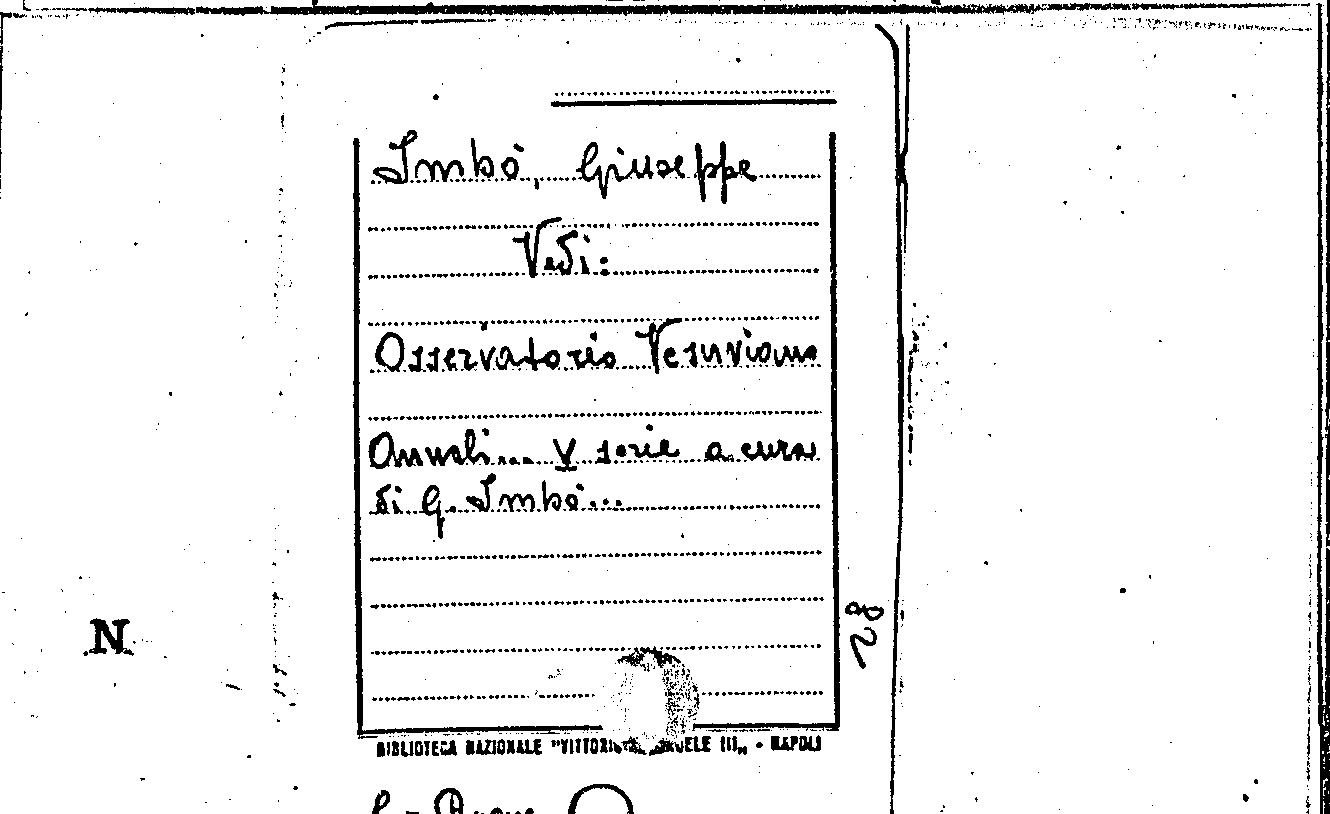 Imbò, Giuseppe
Vedi:
Osservatorio Vesuviano
Annali... V serie a cura
di G. Imbò...
28
N
BIBLIOTECA NAZIONALE "VITTORIO EMANUELE III„ - NAPOLI